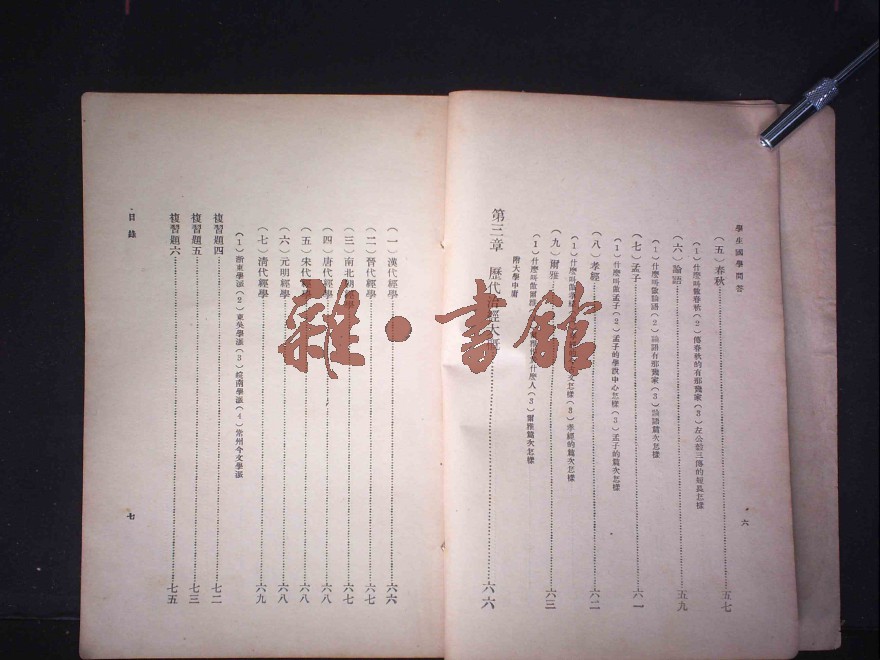 學生國學問答
(五)春秋……五七
(1)什麼叫做春秋(2)傳春秋的有那幾家(3)左公穀三傳的短長怎樣
(六)論語……五九
(1)什麼叫做論語(2)論語有那幾家(3)論語篇次怎樣
(七)孟子……六一
(1)什麼叫做孟子(2)孟子的學說中心怎樣(3)孟子的篇次怎樣
(八)孝經……六二
(1)什麼叫做孝經 怎樣(3)孝經的篇次怎樣
(九)爾雅……六三
(1)什麼叫做爾雅 什麼人(3)爾雅篇次怎樣
附大學中庸
第三章 歷代治經大概……六六
六
(一)漢代經學……六六
(二)晉代經學……六七
(三)南北朝經學……六七
(四)唐代經學……六八
(五)宋代經學……六八
(六)元明經學……六八
(七)清代經學……六九
(1)浙東學派(2)東吳學派(3)皖南學派(4)常州今文學派
複習題四……七二
複習題五……七三
複習題六……七五
目錄
七
雜·書館